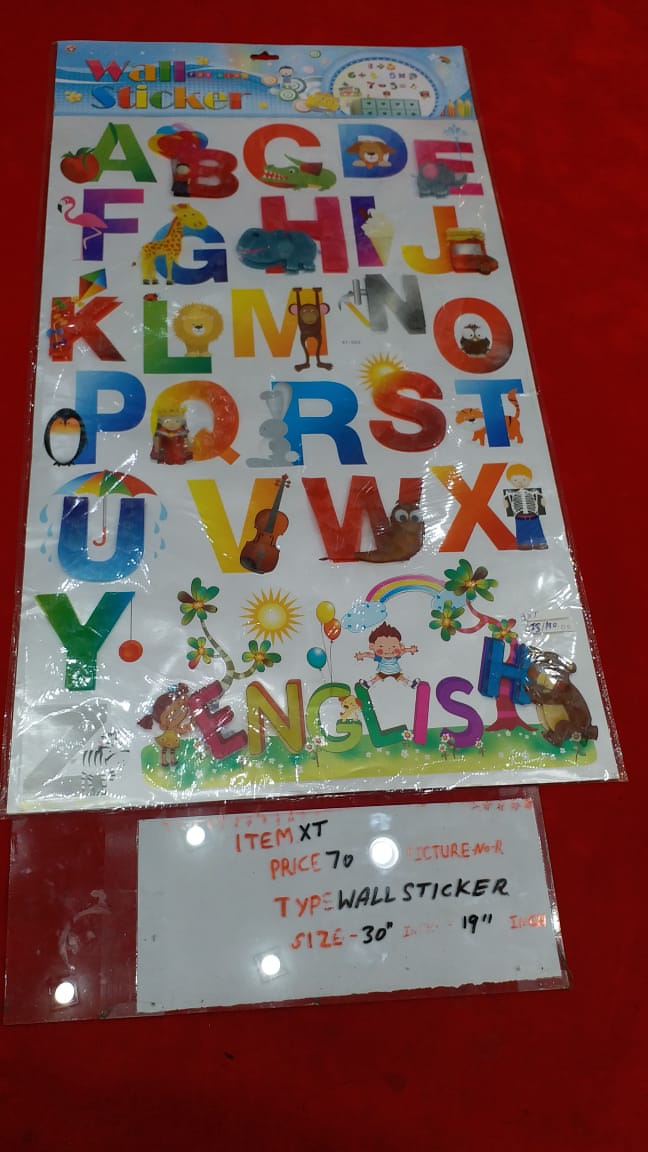 Wall
Sticker
A B C D E
F G H I J
K L M N O
P Q R S T
U V W X
Y
Z
ENGLISH
ITEM XT
PRICE 70 PICTURE-No-R
TYPE WALL STICKER
SIZE-30" INCH 19" INCH